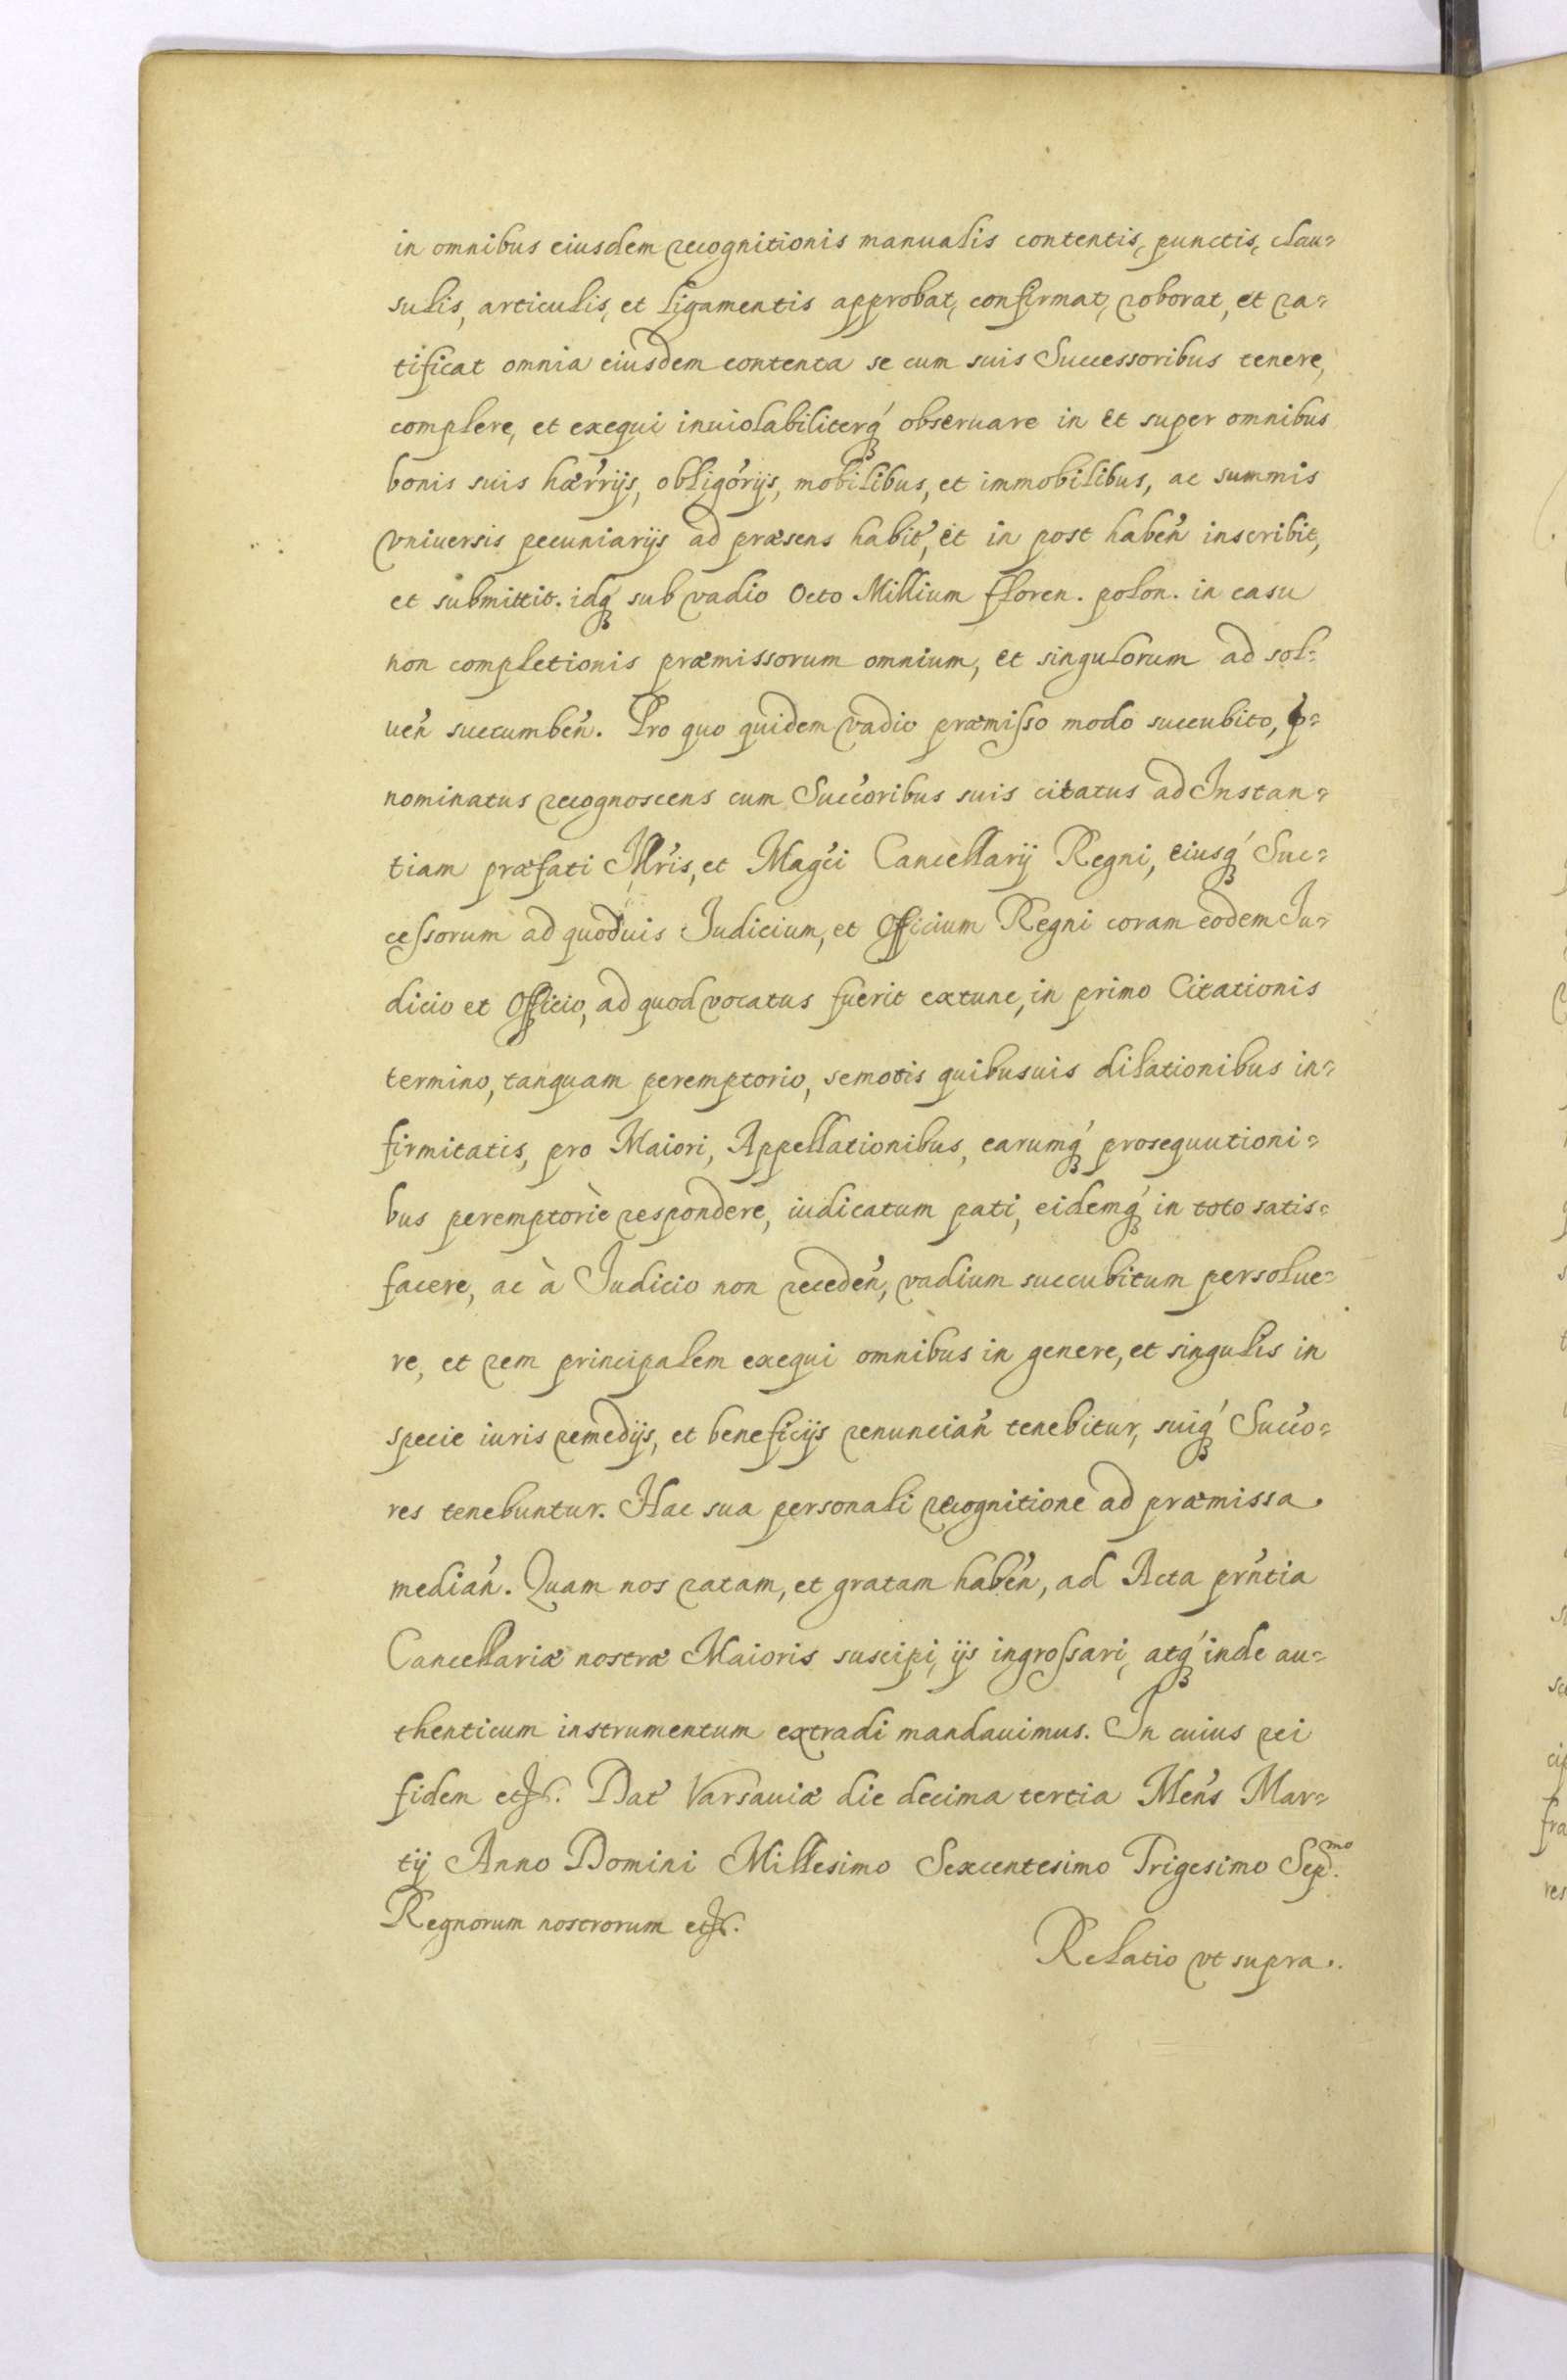 in omnibus eiusdem recognitionis manualis contentis, punctis, clau=
sulis, articulis, et ligamentis approbat, confirmat, roborat, et ra=
tificat omnia eiusdem contenta se cum suis Successoribus tenere,
complere, et exequi inuiolabiliterq́ obseruare in et super omnibus
bonis suis hær̃rijs, obligor̃ijs, mobilibus, et immobilibus, ac summis
vniuersis pecuniarijs ad præsens habit̃, et in post habeñ inscribit,
et submittit. idq́ sub vadio Octo Millium floren. polon. in casu
non completionis præmissorum omnium, et singulorum ad sol=
ueñ succumbeñ. Pro quo quidem vadio præmisso modo succubito, p=
nominatus recognoscens cum Succ̃oribus suis citatus ad Instan=
tiam præfati Illr̃is, et Mag̃ci Cancellarij Regni, eiusq́ Suc=
cessorum ad quoduis Judicium, et Officium Regni coram eodem Ju=
dicio et Officio, ad quod vocatus fuerit extunc, in primo Citationis
termino, tanquam peremptorio, semotis quibusuis dilationibus in=
firmitatis, pro Maiori, Appellationibus, earumq́ prosequutioni=
bus peremptoriè respondere, iudicatum pati, eidemq́ in toto satis=
facere, ac à Judicio non recedeñ, vadium succubitum persolue=
re, et rem principalem exequi omnibus in genere, et singulis in
specie iuris remedijs, et beneficijs renunciañ tenebitur, suiq́ Succ̃o=
res tenebuntur. Hac sua personali recognitione ad præmissa
mediañ. Quam nos ratam, et gratam habeñ, ad Acta pr̃ntia
Cancellariæ nostræ Maioris suscipi, ijs ingrossari, atq́ inde au=
thenticum instrumentum extradi mandauimus. In cuius rei
fidem etc. Dat̃ Varsauiæ die decima tertia Meñs Mar=
tij Anno Domini Millesimo Sexcentesimo Trigesimo Sep.mo
Regnorum nostrorum etc.
Relatio vt supra.